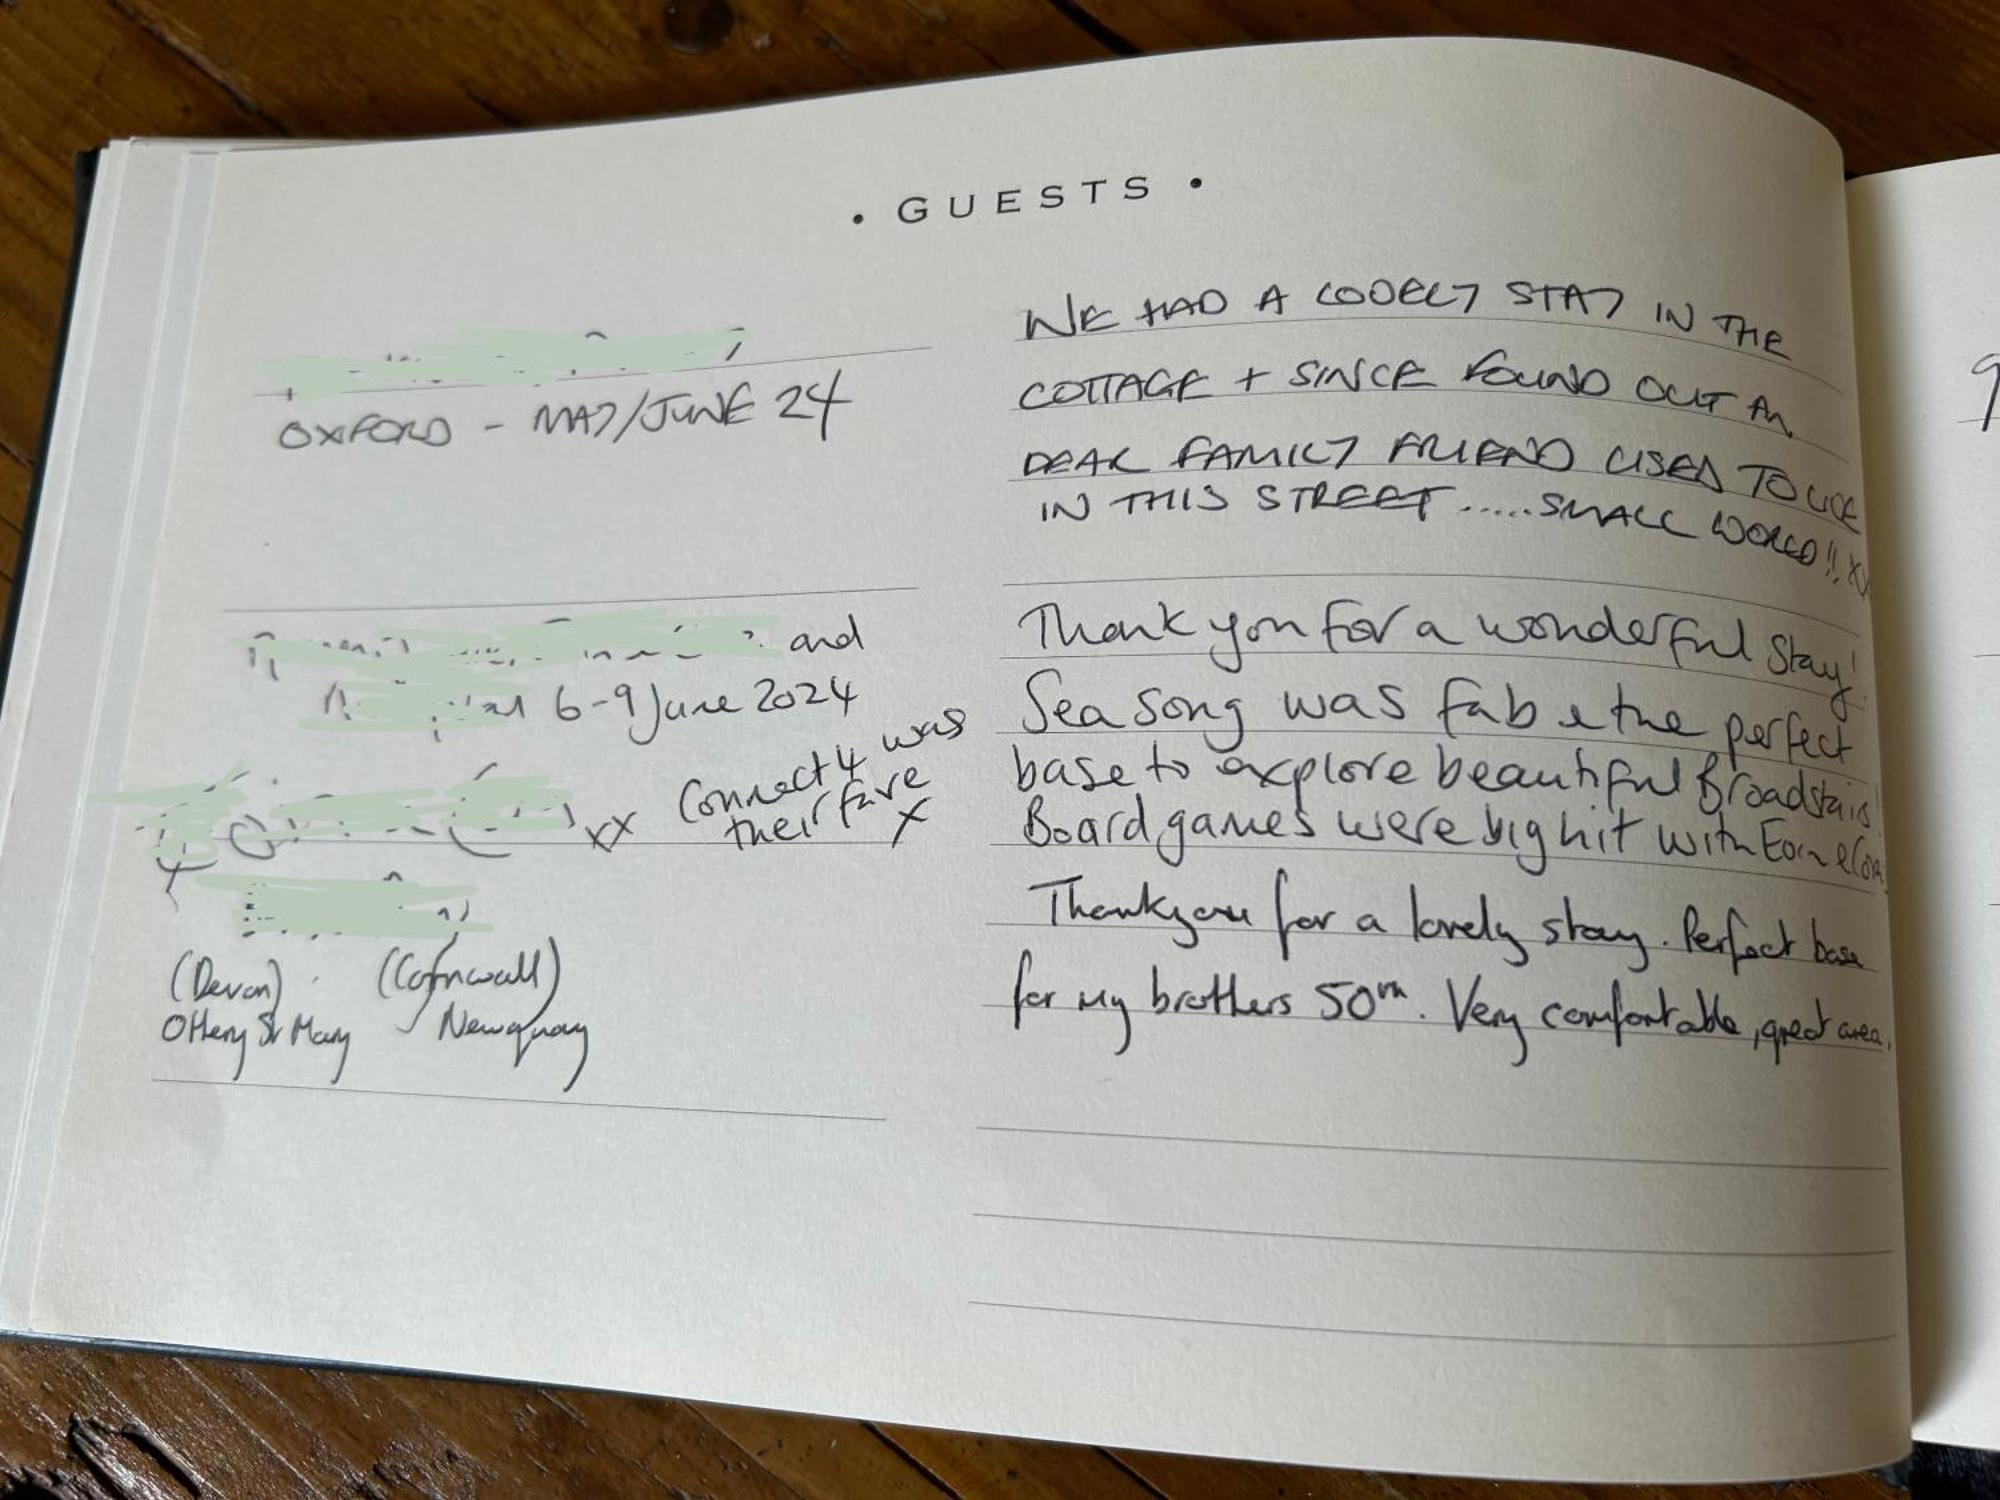 • GUESTS •
OXFORD - MAY/JUNE 24
WE HAD A LOVELY STAY IN THE
COTTAGE + SINCE FOUND OUT A
DEAR FAMILY FRIEND USED TO LIVE
IN THIS STREET.....SMALL WORLD!! XX
and
6-9 June 2024
xx Connect 4 was
their fave
x
Thank you for a wonderful stay!
Sea Song was fab & the perfect
base to explore beautiful Broadstairs!
Board games were big hit with
(Devon) (Cornwall)
Ottery St Mary Newquay
Thankyou for a lovely stay. Perfect base
for my brothers 50th. Very comfortable, great area.